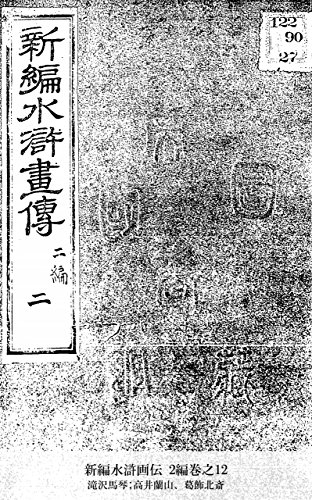 新編水滸畫傳
二編
二
122
90
27
新編水滸画伝 2編巻之12
滝沢馬琴;高井蘭山、葛飾北斎